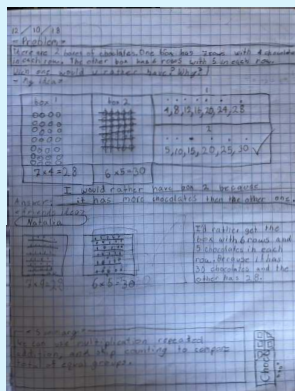 12/10/18
- Problem -
There are 2 boxes of chocolates. One box has 7 rows with 4 chocolates
in each row. The other box has 6 rows with 5 in each row.
Which one would u rather have? Why?
- My idea -
box 1
box 2
1
4,8,12,16,20,24,28
2
5,10,15,20,25,30
7×4=28
6×5=30
I would rather have box 2 because
Answer: it has more chocolates then the other one.
Natalia
I'd rather get the
box with 6 rows and
5 chocolates in each
row, because it has
30 chocolates and the
other has 28.
6×5=30
- Summary -
We can use multiplication, repeated
addition, and skip counting to compare
total of equal groups.